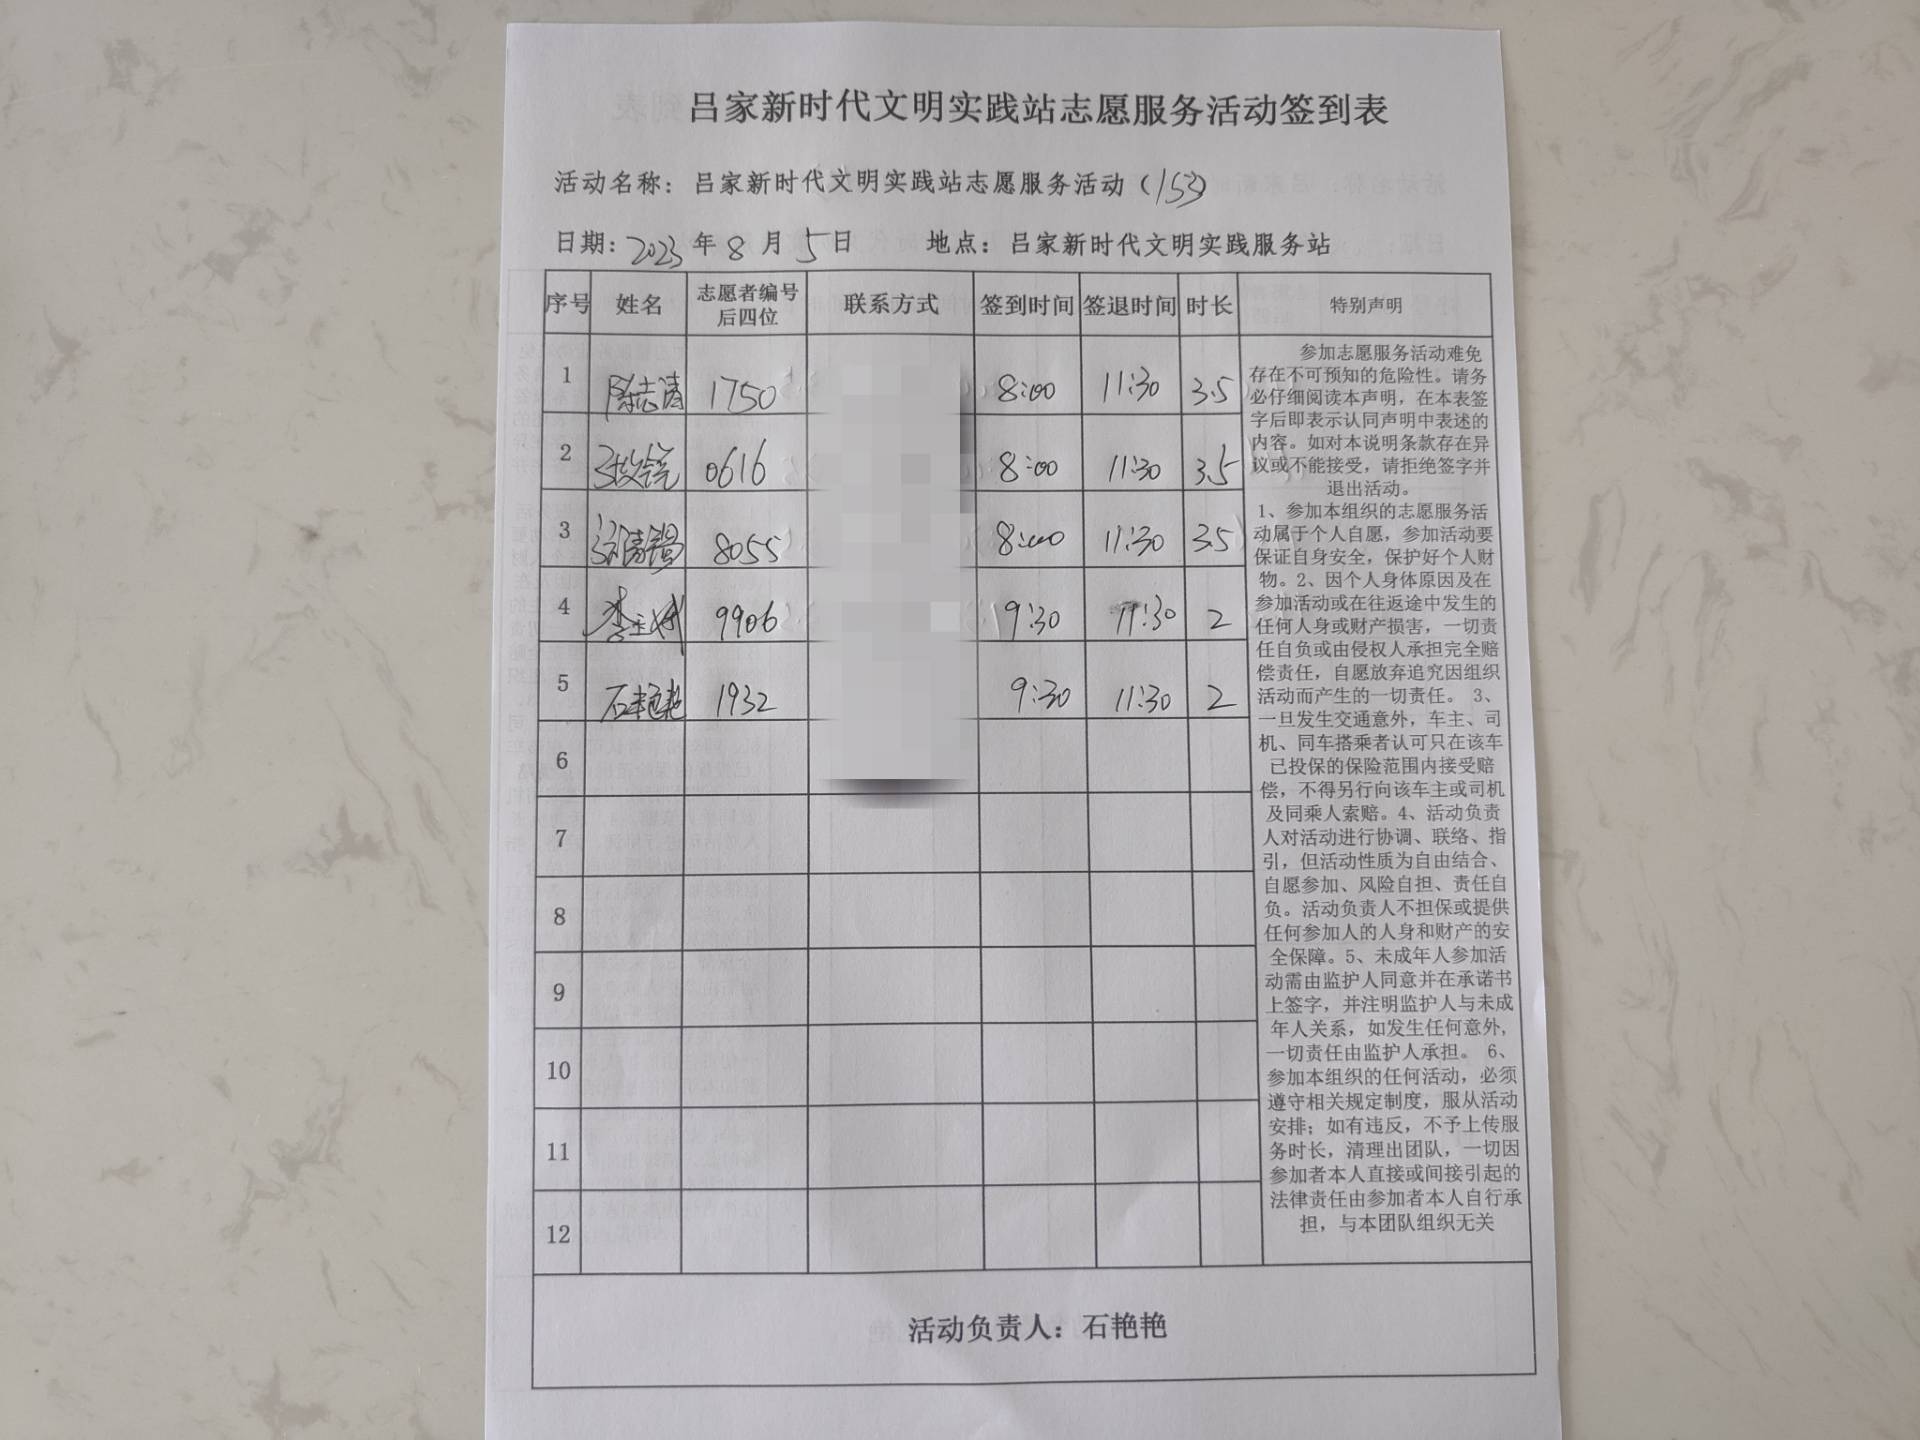 吕家新时代文明实践站志愿服务活动签到表
活动名称：吕家新时代文明实践站志愿服务活动（153）
日期：2023 年 8 月 5 日 地点：吕家新时代文明实践服务站
序号 姓名 志愿者编号后四位 联系方式 签到时间 签退时间 时长 特别声明
1 陈志涛 1750 8:00 11:30 3.5
2 0616 8:00 11:30 3.5
3 8055 8:00 11:30 3.5
4 9906 9:30 11:30 2
5 石艳艳 1932 9:30 11:30 2
6
7
8
9
10
11
12
参加志愿服务活动难免
存在不可预知的危险性。请务
必仔细阅读本声明，在本表签
字后即表示认同声明中表述的
内容。如对本说明条款存在异
议或不能接受，请拒绝签字并
退出活动。
1、参加本组织的志愿服务活
动属于个人自愿，参加活动要
保证自身安全，保护好个人财
物。2、因个人身体原因及在
参加活动或在往返途中发生的
任何人身或财产损害，一切责
任自负或由侵权人承担完全赔
偿责任，自愿放弃追究因组织
活动而产生的一切责任。 3、
一旦发生交通意外，车主、司
机、同车搭乘者认可只在该车
已投保的保险范围内接受赔
偿，不得另行向该车主或司机
及同乘人索赔。4、活动负责
人对活动进行协调、联络、指
引，但活动性质为自由结合、
自愿参加、风险自担、责任自
负。活动负责人不担保或提供
任何参加人的人身和财产的安
全保障。5、未成年人参加活
动需由监护人同意并在承诺书
上签字，并注明监护人与未成
年人关系，如发生任何意外，
一切责任由监护人承担。 6、
参加本组织的任何活动，必须
遵守相关规定制度，服从活动
安排；如有违反，不予上传服
务时长，清理出团队，一切因
参加者本人直接或间接引起的
法律责任由参加者本人自行承
担，与本团队组织无关
活动负责人：石艳艳